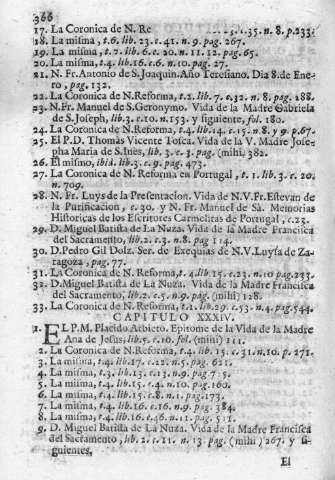 366
17. La Coronica de N. Re 5. l. 35. n. 8. p. 233.
18. La misma, t. 6. lib. 23. c. 41. n. 9. pag. 267.
19. La misma, t. 7. lib. 6. c. 20. n. 11. 12. pag. 65.
20. La misma, t. 4. lib. 16. c. 6. n. 10. pag. 27.
21. N. Fr. Antonio de S. Joaquin. Año Teresiano. Dia 8. de Ene-
ro, pag. 132.
22. La Coronica de N. Reforma, t. 2. lib. 7. c. 32. n. 8. pag. 288.
23. N. Fr. Manuel de S. Geronymo. Vida de la Madre Gabriela
de S. Joseph, lib. 3. c. 10. n. 153. y siguiente, fol. 180.
24. La Coronica de N. Reforma, t. 4. lib. 14. c. 15. n. 8. y 9. p. 67.
25. El P. D. Thomás Vicente Tosca. Vida de la V. Madre Jose-
pha Maria de S. Inès, lib. 3. c. 3. pag. (mihi) 382.
26. El mismo, ibid. lib. 3. c. 9. pag. 473.
27. La Coronica de N. Reforma en Portugal, t. 1. lib. 3. c. 20.
n. 709.
28. N. Fr. Luys de la Presentacion. Vida de N. V. Fr. Estevan de
la Purificacion, c. 30. y N. Fr. Manuel de Sà. Memorias
Historicas de los Escritores Carmelitas de Portugal, c. 23.
29. D. Miguel Batista de La Nuza. Vida de la Madre Francisca
del Sacramento, lib. 2. c. 3. n. 8. pag 114.
30. D. Pedro Gil Dolz. Ser. de Exequias de N. V. Luysa de Za-
ragoza, pag. 77.
31. La Coronica de N. Reforma, t. 4. lib 15. c. 23. n. 10 pag. 233.
32. D. Miguel Batista de La Nuza. Vida de la Madre Francisca
del Sacramento, lib. 2. c. 5. n. 9. pag. (mihi) 128.
33. La Coronica de N. Reforma, t. 1. lib. 29. c. 53. n. 4. pag. 544.
CAPITULO XXXIV.
1. EL P. M. Placido Arbieto. Epitome de la Vida de la Madre
Ana de Jesus, lib. 5. c. 10. fol. (mihi) 111.
2. La Coronica de N. Reforma, t. 4. lib. 15. c. 31. n. 10. p. 271.
3. La misma, t. 4. lib. 17. c. 12. n. 5. pag. 621.
4. La misma, t. 3. lib. 13. c. 13. n. 9. pag 715.
5. La misma, t. 4. lib. 15. c. 4. n. 10. pag. 160.
6. La misma, t. 4. lib. 15. c. 8. n. 1. pag. 173.
7. La misma, t. 4. lib. 16. c. 16. n. 9. pag. 384.
8. La misma, t. 4. lib. 16. c. 46. n. 11. pag. 511.
9. D. Miguel Batista de La Nuza. Vida de la Madre Francisca
del Sacramento, lib. 2. c. 11. n. 13. pag. (mihi) 267. y si-
guientes.
El